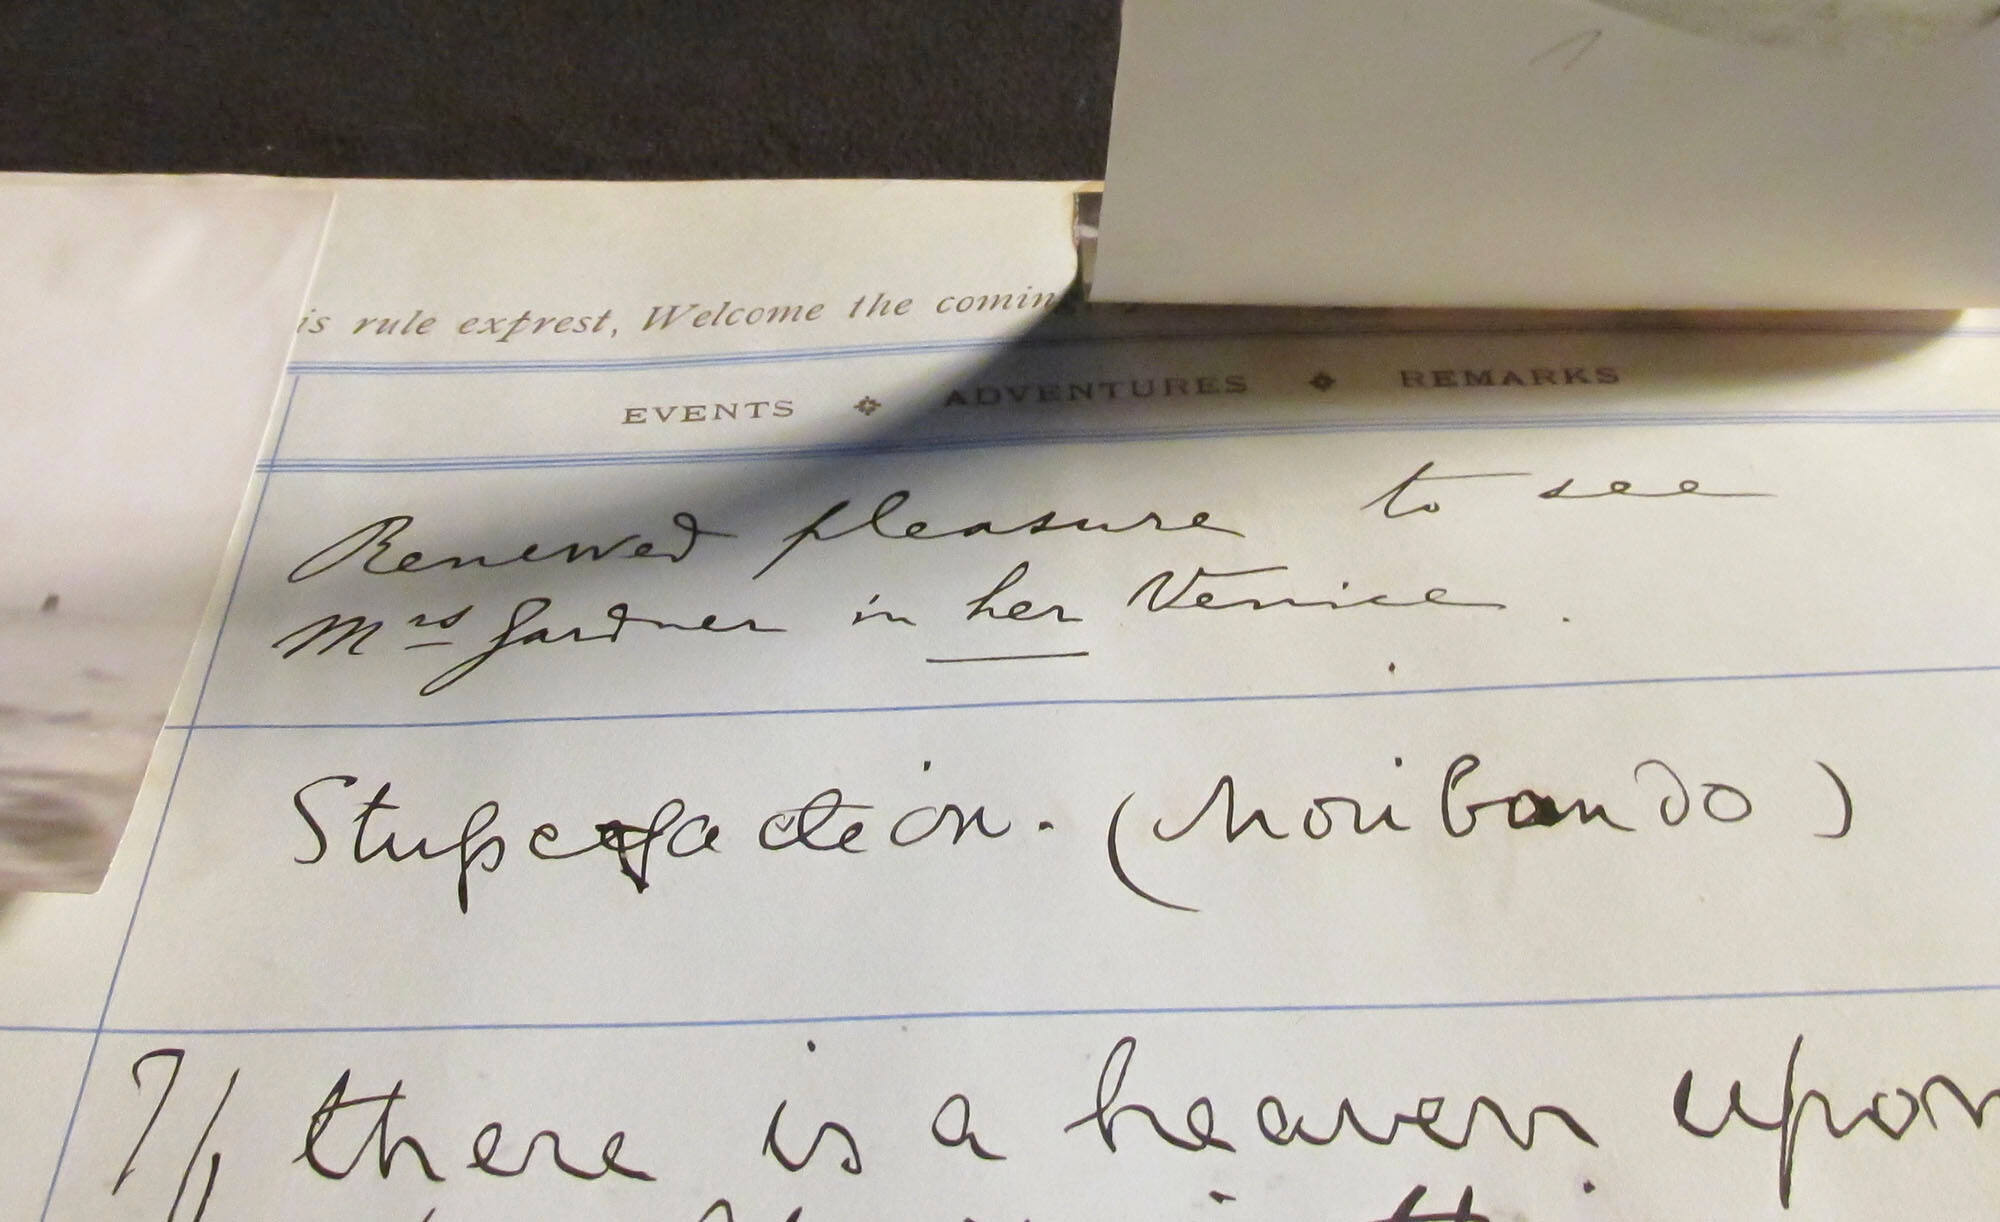 is rule exprest, Welcome the coming
EVENTS ❖ ADVENTURES ❖ REMARKS
Renewed pleasure to see
Mrs Gardner in her Venice.
Stupefaction. (Moribondo)
If there is a heaven upon